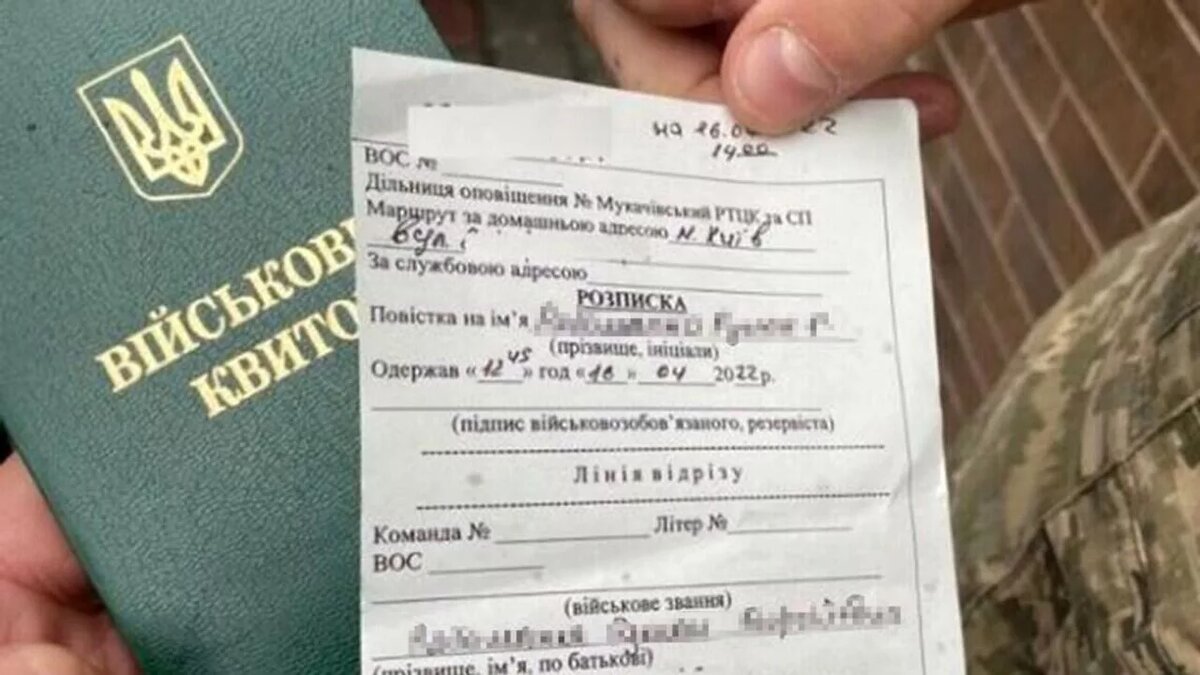 ВІЙСЬКОВ
КВИТО
на 16.0 22
14.00
ВОС №
Дільниця оповіщення № Мукачівський РТЦК за СП
Маршрут за домашньою адресою м. Київ
вул
За службовою адресою
РОЗПИСКА
Повістка на ім’я
(прізвище, ініціали)
Одержав «12 45» год «16» 04 2022 р.
(підпис військовозобов’язаного, резервіста)
Лінія відрізу
Команда № Літер №
ВОС
(військове звання)
(прізвище, ім’я, по батькові)